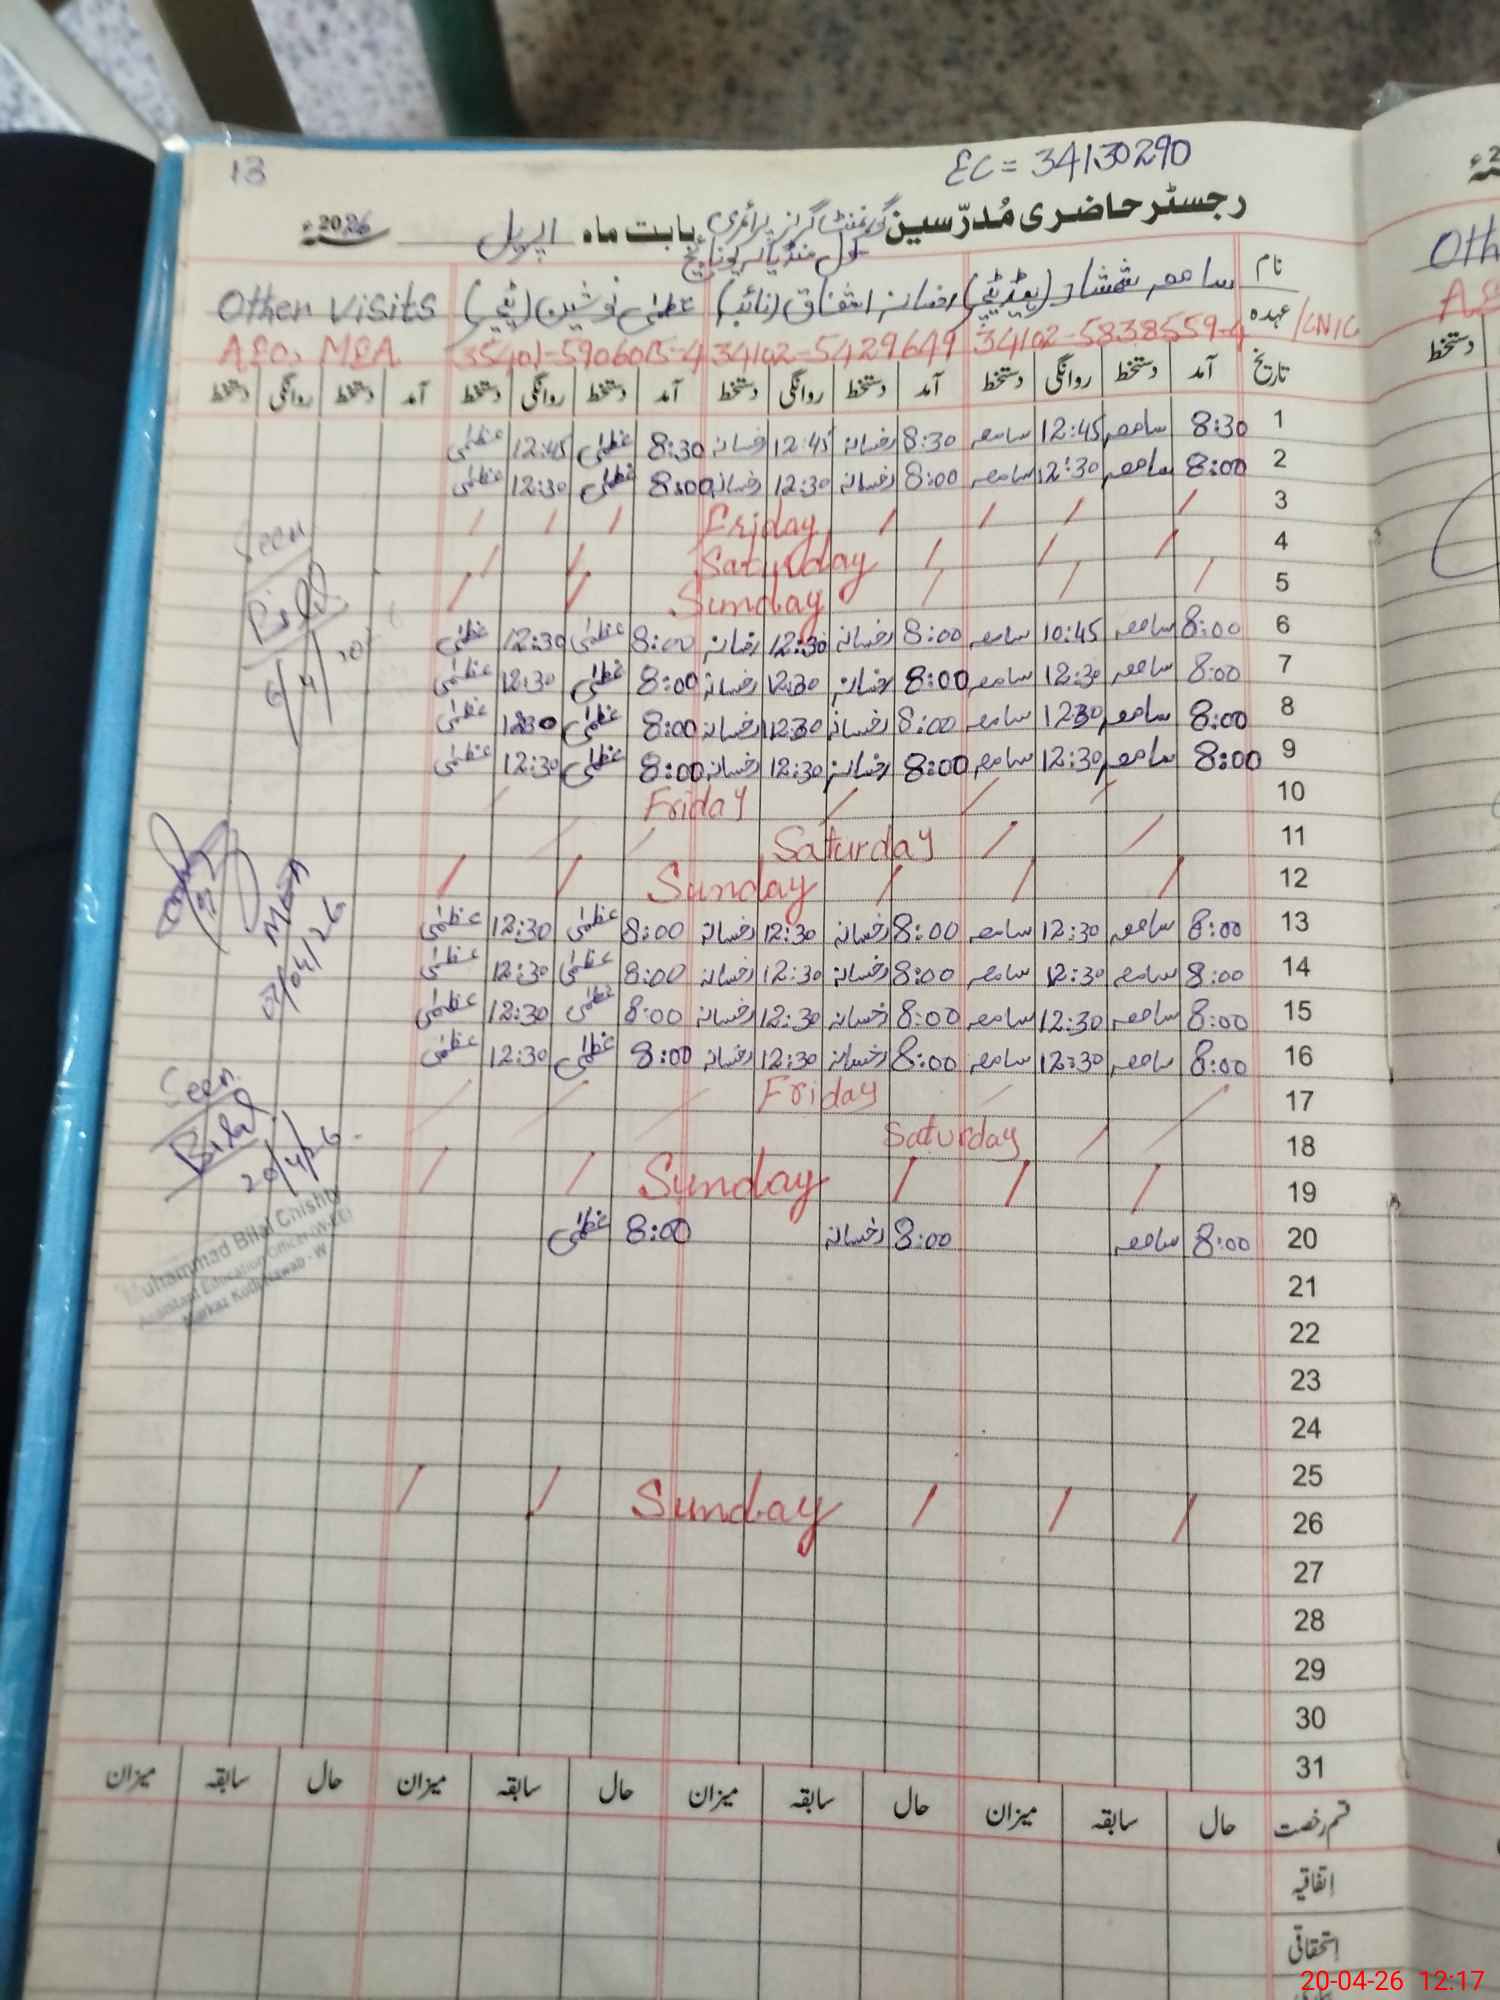 13
EC = 34130290
رجسٹر حاضری مُدرّسین گورنمنٹ گرلز پرائمری بابت ماہ اپریل 2026ء
سکول
نام سامعہ شمشاد (ہیڈ ٹیچر) رخسانہ اشفاق (نائب) عظمیٰ نوشین (ٹیچر) Other Visits
عہدہ / CNIC 34102-5838559-4 34102-5429649 35401-5906015-4 AEO, MEA
تاریخ آمد دستخط روانگی دستخط آمد دستخط روانگی دستخط آمد دستخط روانگی دستخط آمد دستخط روانگی دستخط
1 8:30 سامعہ 12:45 سامعہ 8:30 رخسانہ 12:45 رخسانہ 8:30 عظمیٰ 12:45 عظمیٰ
2 8:00 سامعہ 12:30 سامعہ 8:00 رخسانہ 12:30 رخسانہ 8:00 عظمیٰ 12:30 عظمیٰ
3 / / / / Friday / / /
4 / / / Saturday / /
5 / / / Sunday / /
6 8:00 سامعہ 10:45 سامعہ 8:00 رخسانہ 12:30 رخسانہ 8:00 عظمیٰ 12:30 عظمیٰ
7 8:00 سامعہ 12:30 سامعہ 8:00 رخسانہ 12:30 رخسانہ 8:00 عظمیٰ 12:30 عظمیٰ
8 8:00 سامعہ 1230 سامعہ 8:00 رخسانہ 12:30 رخسانہ 8:00 عظمیٰ 12:30 عظمیٰ
9 8:00 سامعہ 12:30 سامعہ 8:00 رخسانہ 12:30 رخسانہ 8:00 عظمیٰ 12:30 عظمیٰ
10 / / / Friday /
11 / / Saturday / /
12 / / / Sunday / /
13 8:00 سامعہ 12:30 سامعہ 8:00 رخسانہ 12:30 رخسانہ 8:00 عظمیٰ 12:30 عظمیٰ
14 8:00 سامعہ 12:30 سامعہ 8:00 رخسانہ 12:30 رخسانہ 8:00 عظمیٰ 12:30 عظمیٰ
15 8:00 سامعہ 12:30 سامعہ 8:00 رخسانہ 12:30 رخسانہ 8:00 عظمیٰ 12:30 عظمیٰ
16 8:00 سامعہ 12:30 سامعہ 8:00 رخسانہ 12:30 رخسانہ 8:00 عظمیٰ 12:30 عظمیٰ
17 / / Friday / / /
18 / / Saturday
19 / / / Sunday / /
20 8:00 سامعہ 8:00 رخسانہ 8:00 عظمیٰ
21
22
23
24
25
26 / / / Sunday / /
27
28
29
30
31
Seen
Bilal
6/4/
MEA
07/04/26
Seen
Bilal
20/4/26
Muhammad Bilal Chishty
Assistant Education Officer (W-EE)
Markaz Kotli Nawab - W
قسم رخصت حال سابقہ میزان حال سابقہ میزان حال سابقہ میزان حال سابقہ میزان
اتفاقیہ
استحقاقی
دستخط
20-04-26 12:17